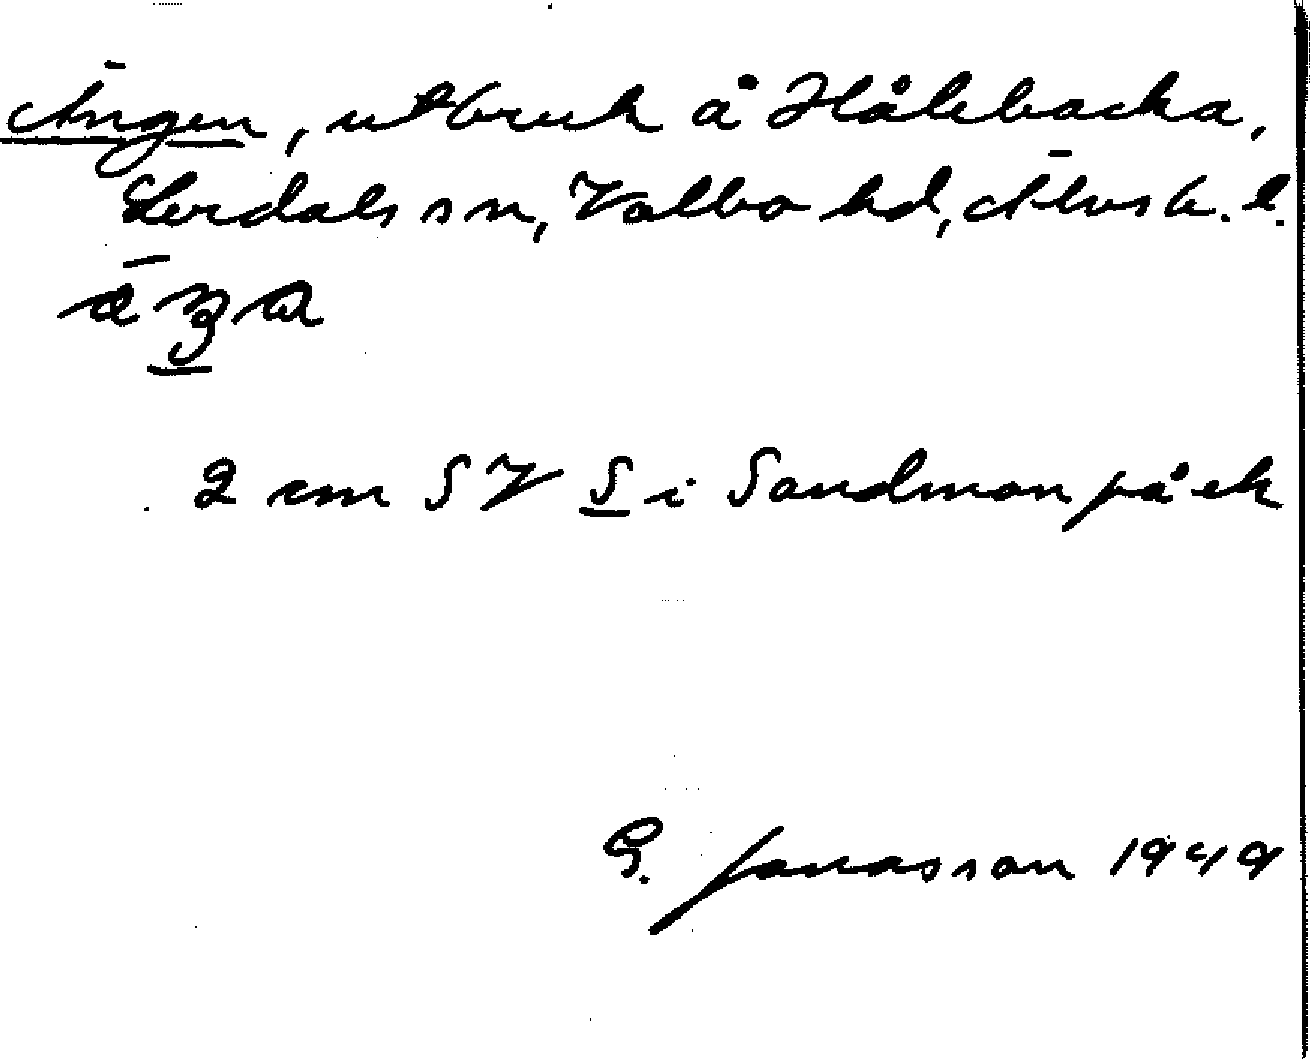 Ängen, utbruk å Hålebacka,
Lerdals sn, Valbo hd, Älvsb. l.
2 cm SV S i Sandmon på ek
G. Jonasson 1949